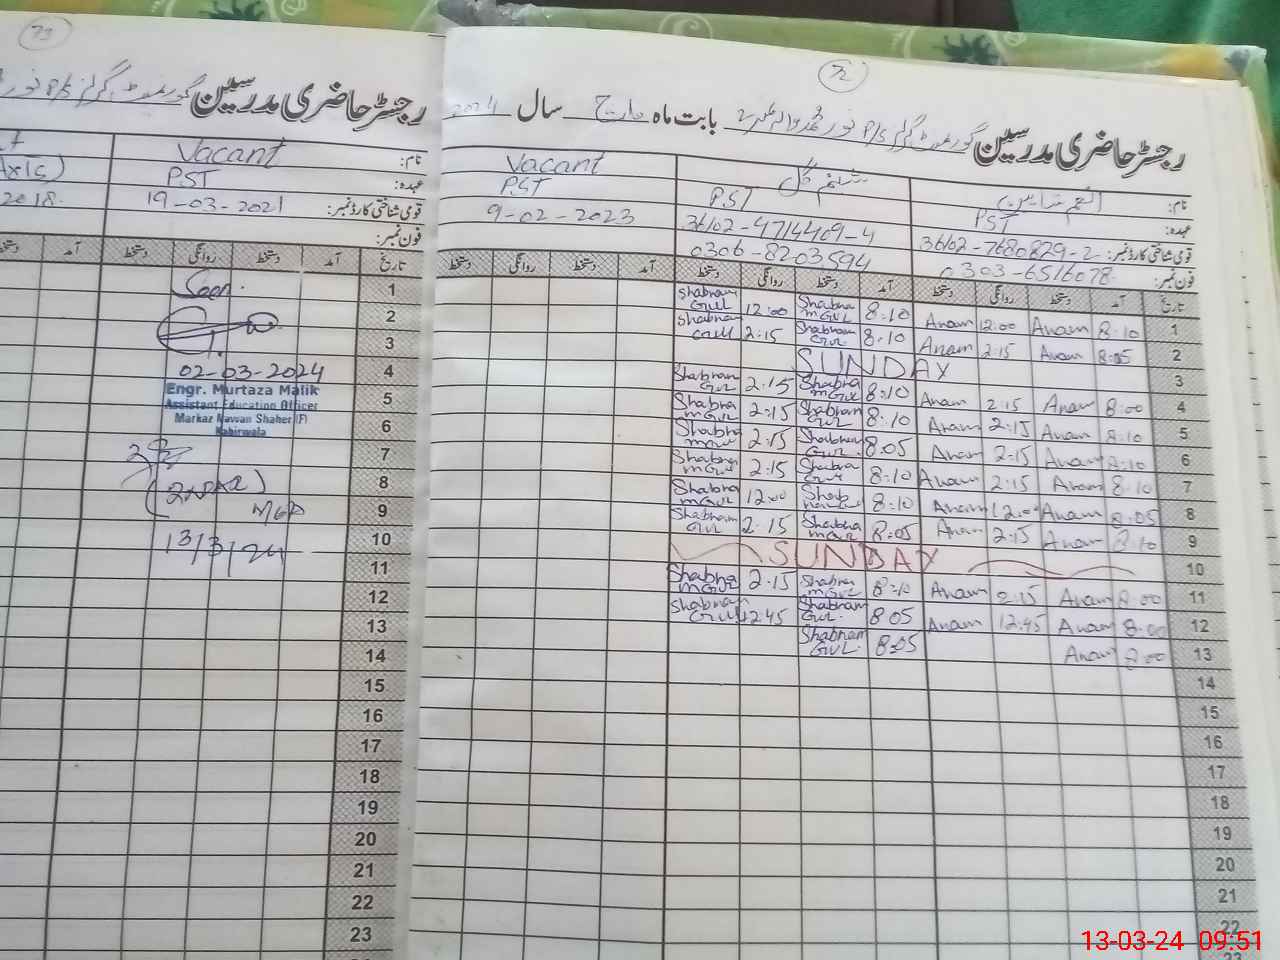 73
رجسٹر حاضری مدرسین گورنمنٹ گرلز P/S نور
Vacant
نام:
PST
عہدہ:
2018
19-03-2021
قومی شناختی کارڈ نمبر:
فون نمبر:
دستخط آمد دستخط روانگی دستخط آمد تاریخ
1
2
3
4
5
6
7
8
9
10
11
12
13
14
15
16
17
18
19
20
21
22
23
Seen
02-03-2024
Engr. Murtaza Malik
Assistant Education Officer
Markaz Nawan Shaher (F)
Kabirwala
13/3/24
72
رجسٹر حاضری مدرسین گورنمنٹ گرلز P/S نور بابت ماہ مارچ سال 2024
نام: Vacant شبنم گل
عہدہ: PST PST PST
قومی شناختی کارڈ نمبر: 36102-7680829-2 36102-4714409-4 9-02-2023
فون نمبر: 0303-6516078 0306-8203594
تاریخ آمد دستخط روانگی دستخط آمد دستخط روانگی دستخط آمد دستخط روانگی دستخط
1 8:10 Anam 12:00 Anam 8:10 Shabnam Gul 12:00 Shabnam Gul
2 8:05 Anam 2:15 Anam 8:10 Shabnam Gul 2:15 Shabnam Gul
3 SUNDAY
4 8:00 Anam 2:15 Anam 8:10 Shabnam Gul 2:15 Shabnam Gul
5 8:10 Anam 2:15 Anam 8:10 Shabnam Gul 2:15 Shabnam Gul
6 8:10 Anam 2:15 Anam 8:05 Shabnam Gul 2:15 Shabnam Gul
7 8:10 Anam 2:15 Anam 8:10 Shabnam Gul 2:15 Shabnam Gul
8 8:05 Anam 12:00 Anam 8:10 Shabnam Gul 12:00 Shabnam Gul
9 8:10 Anam 2:15 Anam 8:05 Shabnam Gul 2:15 Shabnam Gul
10 SUNDAY
11 8:00 Anam 2:15 Anam 8:10 Shabnam Gul 2:15 Shabnam Gul
12 8:00 Anam 12:45 Anam 8:05 Shabnam Gul 12:45 Shabnam Gul
13 8:00 Anam 8:05 Shabnam Gul
14
15
16
17
18
19
20
21
22
23
13-03-24 09:51